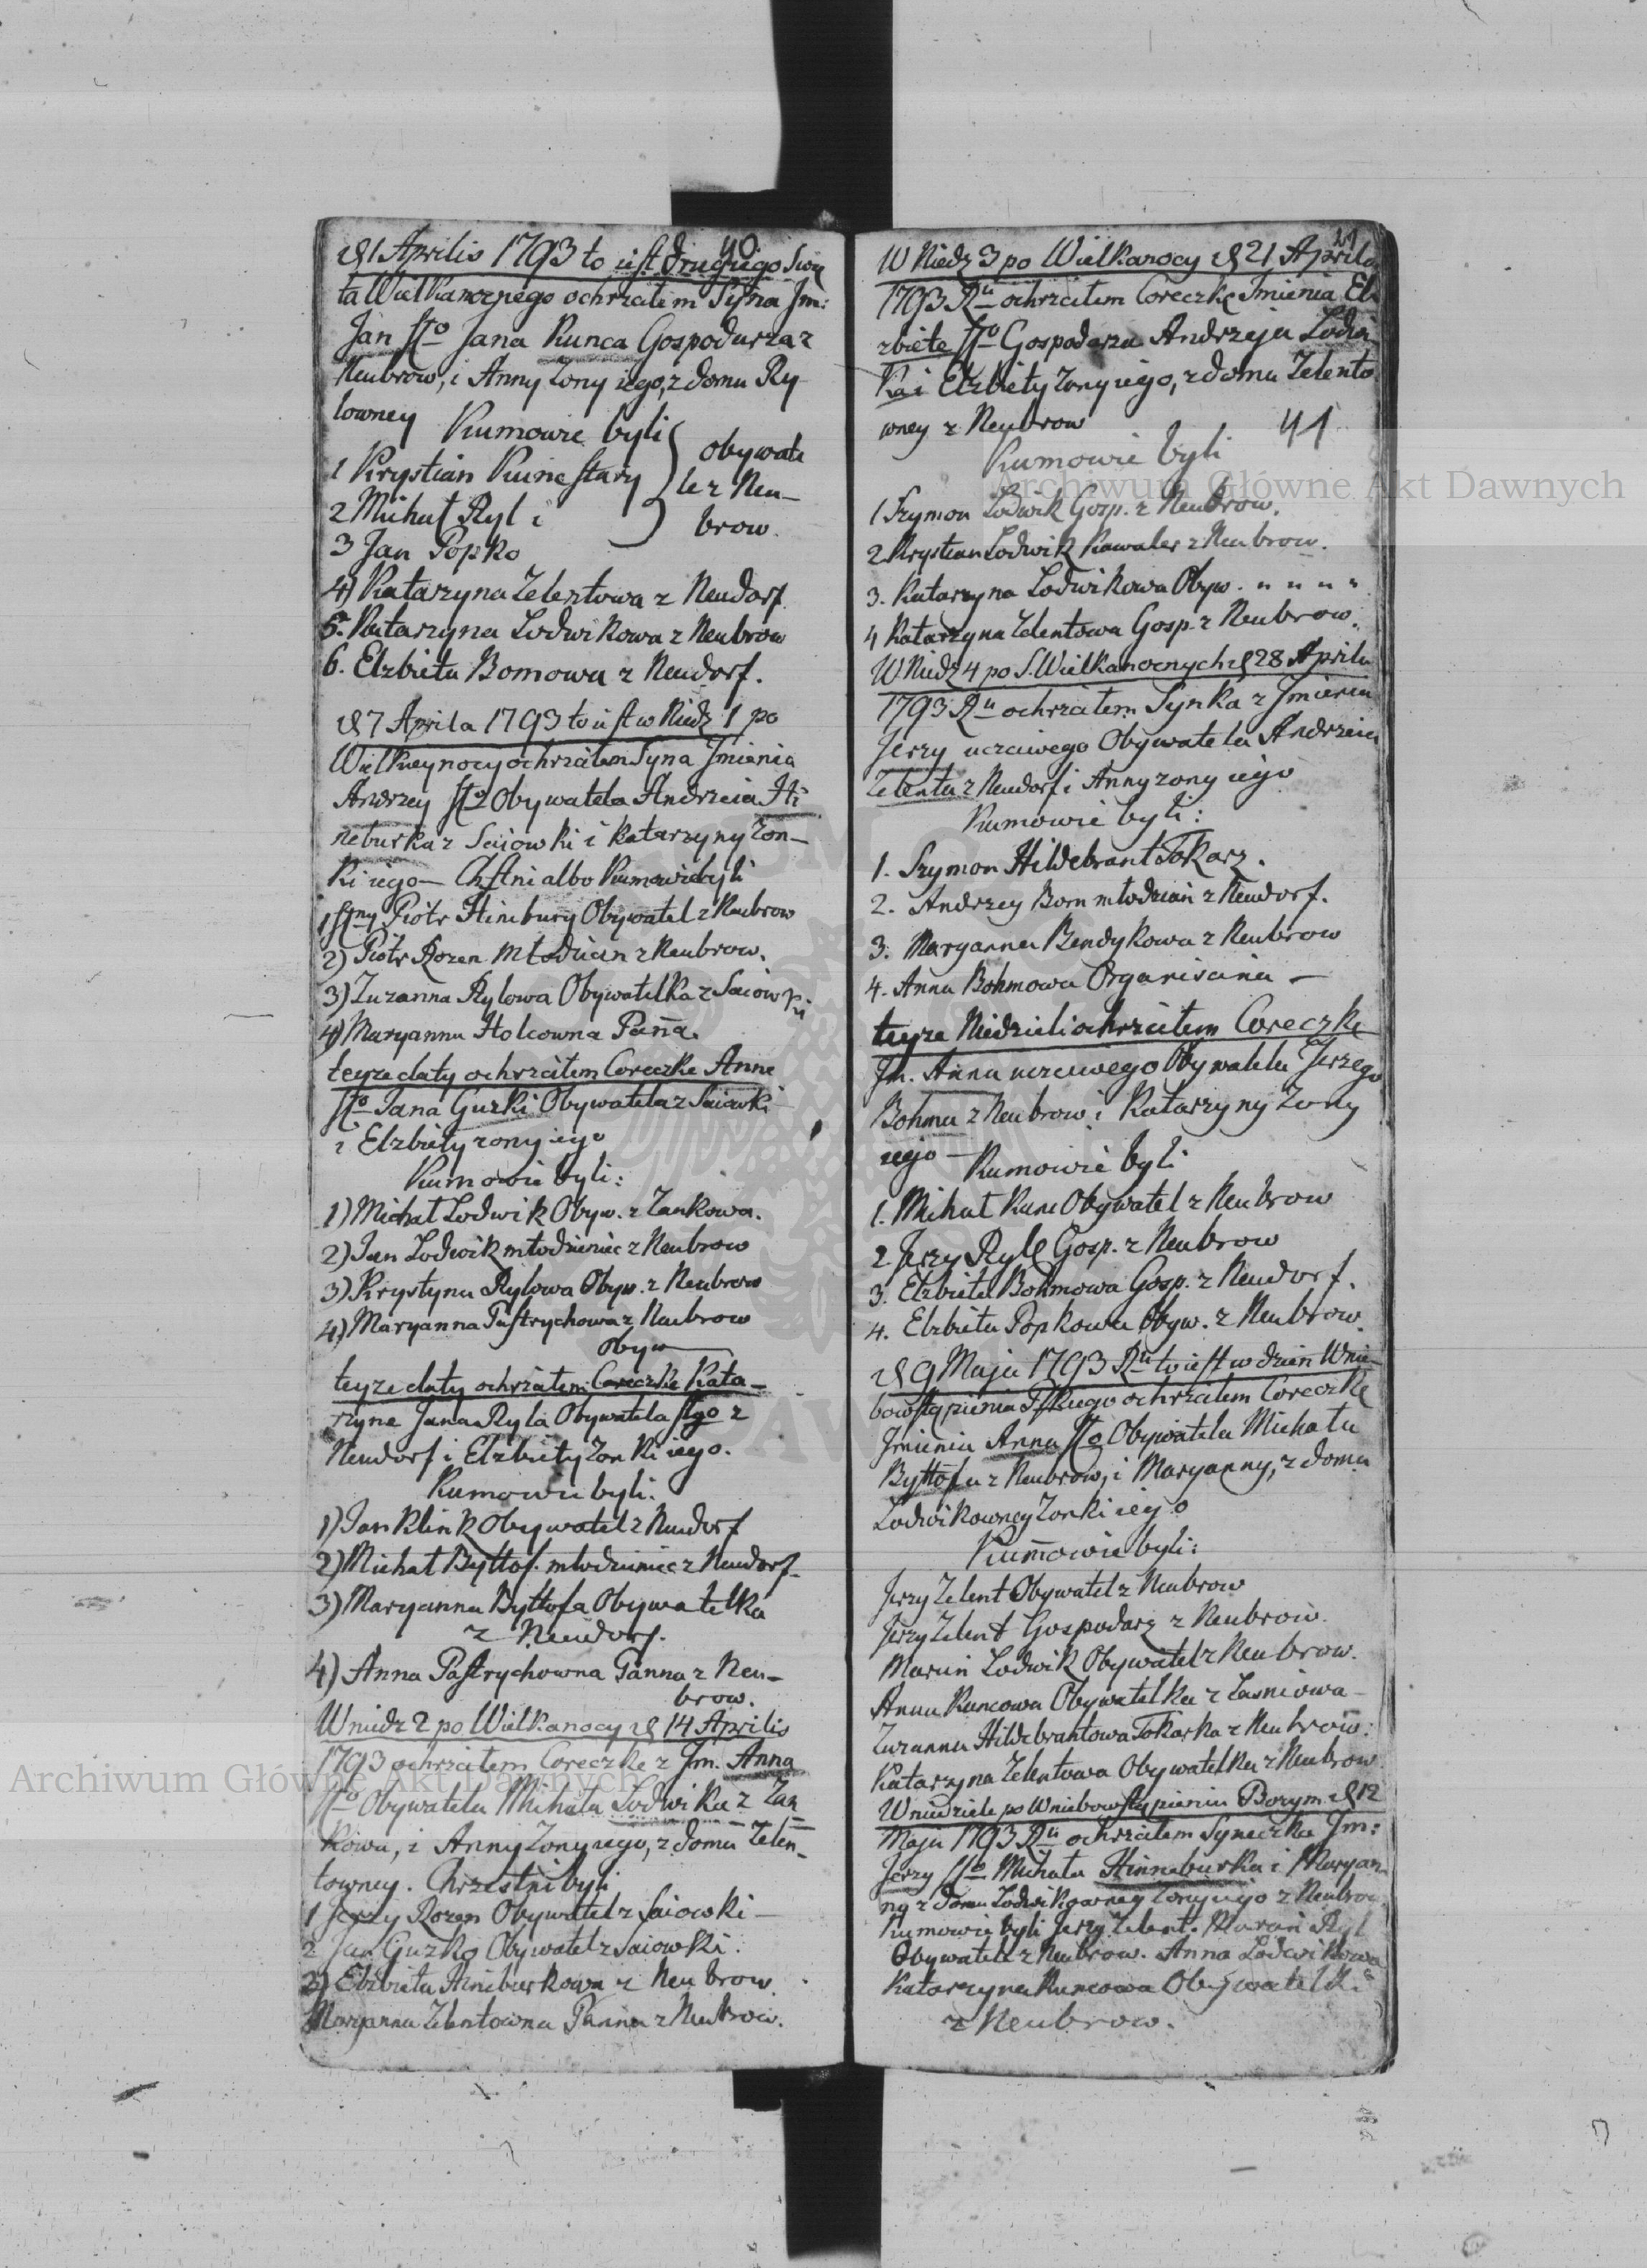 40
d 1 Aprilis 1793 to iest drugiego Swię
ta Wielkanocznego ochrzciłem Syna Jm:
Jan sł° Jana Kunca Gospodarza z
Neubrow, i Anny Zony iego, z domu Ry
lowney
Kumowie byli
1 Krystian Kunc stary
2 Michał Ryl i
3 Jan Popko
obywate
le z Neu-
brow.
4) Katarzyna Zelentowa z Neudorf
5. Katarzyna Lodwikowa z Neubrow
6. Elzbieta Bomowa z Neudorf.
d 7 Aprila 1793 to iest w Niedz 1 po
Wielkieynocy ochrzciłem Syna Jmienia
Andrzey sł° Obywatela Andrzeia Hi
neburka z Saiowki i Katarzyny Zon-
ki iego - Chstni albo Kumowie byli
1 Piotr Hineburg Obywatel z Neubrow
2) Piotr Rozen Młodzian z Neubrow.
3) Zuzanna Rylowa Obywatelka z Saiowki
4) Maryanna Holcowna Panna.
teyze daty ochrzciłem Coreczke Anne
sł° Jana Guzki Obywatela z Saiowki
i Elzbiety zony iego
Kumowie byli:
1) Michał Lodwik Obyw. z Zankowa.
2) Jan Lodwik młodzieniec z Neubrow
3) Krystyna Rylowa Obyw. z Neubrow
4) Maryanna Pastrychowa z Neubrow
Obyw
teyze daty ochrzciłem Coreczke Kata-
rzyne Jana Ryla Obywatela słgo z
Neudorf i Elzbiety Zonki iego.
Kumowie byli:
1) Jan Klink Obywatel z Neudorf
2) Michał Byttof. młodzieniec z Neudorf.
3) Maryanna Byttofa Obywatelka
z Neudorf.
4) Anna Pastrychowna Panna z Neu-
brow.
W niedz 2 po Wielkanocy d 14 Aprilis
1793 ochrzciłem Coreczke z Jm. Anna
sł° Obywatela Michała Lodwika z Zan
kowa, i Anny Zony iego, z domu Zelen-
towney. Chrzestni byli
1 Jerzy Rozen Obywatel z Saiowki -
2 Jan Guzko Obywatel z Saiowki.
3) Elzbieta Hineburkowa z Neubrow.
Maryanna Zelentowna Panna z Neubrow.
41
W Niedz 3 po Wielkanocy d 21 Aprila
1793 Ru ochrzciłem Coreczkę Jmienia El-
zbiete sł° Gospodarza Andrzeja Lodwi
ka i Elzbiety Zony iego, z domu Zelento
wney z Neubrow
41
Kumowie byli
1 Szymon Lodwik Gosp. z Neubrow.
2 Krystian Lodwik Kawaler z Neubrow.
3. Katarzyna Lodwikowa Obyw. " " " "
4 Katarzyna Zelentowa Gosp. z Neubrow.
W Niedz 4 po S. Wielkanocnych d 28 Aprila
1793 Ru ochrzciłem Synka z Jmienia
Jerzy uczciwego Obywatela Andrzeia
Zelenta z Neudorf i Anny zony iego
Kumowie byli:
1. Szymon Hildebrant Tokarz.
2. Andrzey Bom młodzian z Neudorf.
3. Maryanna Bendykowa z Neubrow
4. Anna Bohmowa Organiscina -
teyze Niedzieli ochrzciłem Coreczkę
Jm. Anna uczciwego Obywatela Jerzego
Bohma z Neubrow i Katarzyny Zony
iego -
Kumowie byli
1. Michał Kunc Obywatel z Neubrow
2. Jerzy Ryll Gosp. z Neubrow
3. Elzbieta Bohmowa Gosp. z Neudorf.
4. Elzbieta Popkowa Obyw. z Neubrow.
d 9 Maja 1793 Ru to iest w dzien Wnie-
bowstąpienia Pskiego ochrzciłem Coreczkę
Jmienia Anna sł° Obywatela Michała
Byttofa z Neubrow, i Maryanny, z domu
Lodwikowney Zonki iego
Kumowie byli:
Jerzy Zelent Obywatel z Neubrow
Jerzy Zelent Gospodarz z Neubrow.
Marcin Lodwik Obywatel z Neubrow.
Anna Kuncowa Obywatelka z Zasniowa -
Zuzanna Hildebrantowa Tokarka z Neubrow:
Katarzyna Zelentowa Obywatelka z Neubrow
W niedziele po Wniebowstąpieniu Bozym d 12
Maja 1793 Ru ochrzciłem Syneczka Jm:
Jerzy sł° Michała Hinneburka i Maryan
ny z domu Lodwikowney Zony iego z Neubrow
Kumowie byli Jerzy Zelent. Marcin Ryl
Obywatele z Neubrow. Anna Lodwikowa
Katarzyna Kuncowa Obywatelki
z Neubrow.
Archiwum Główne Akt Dawnych
Archiwum Główne Akt Dawnych